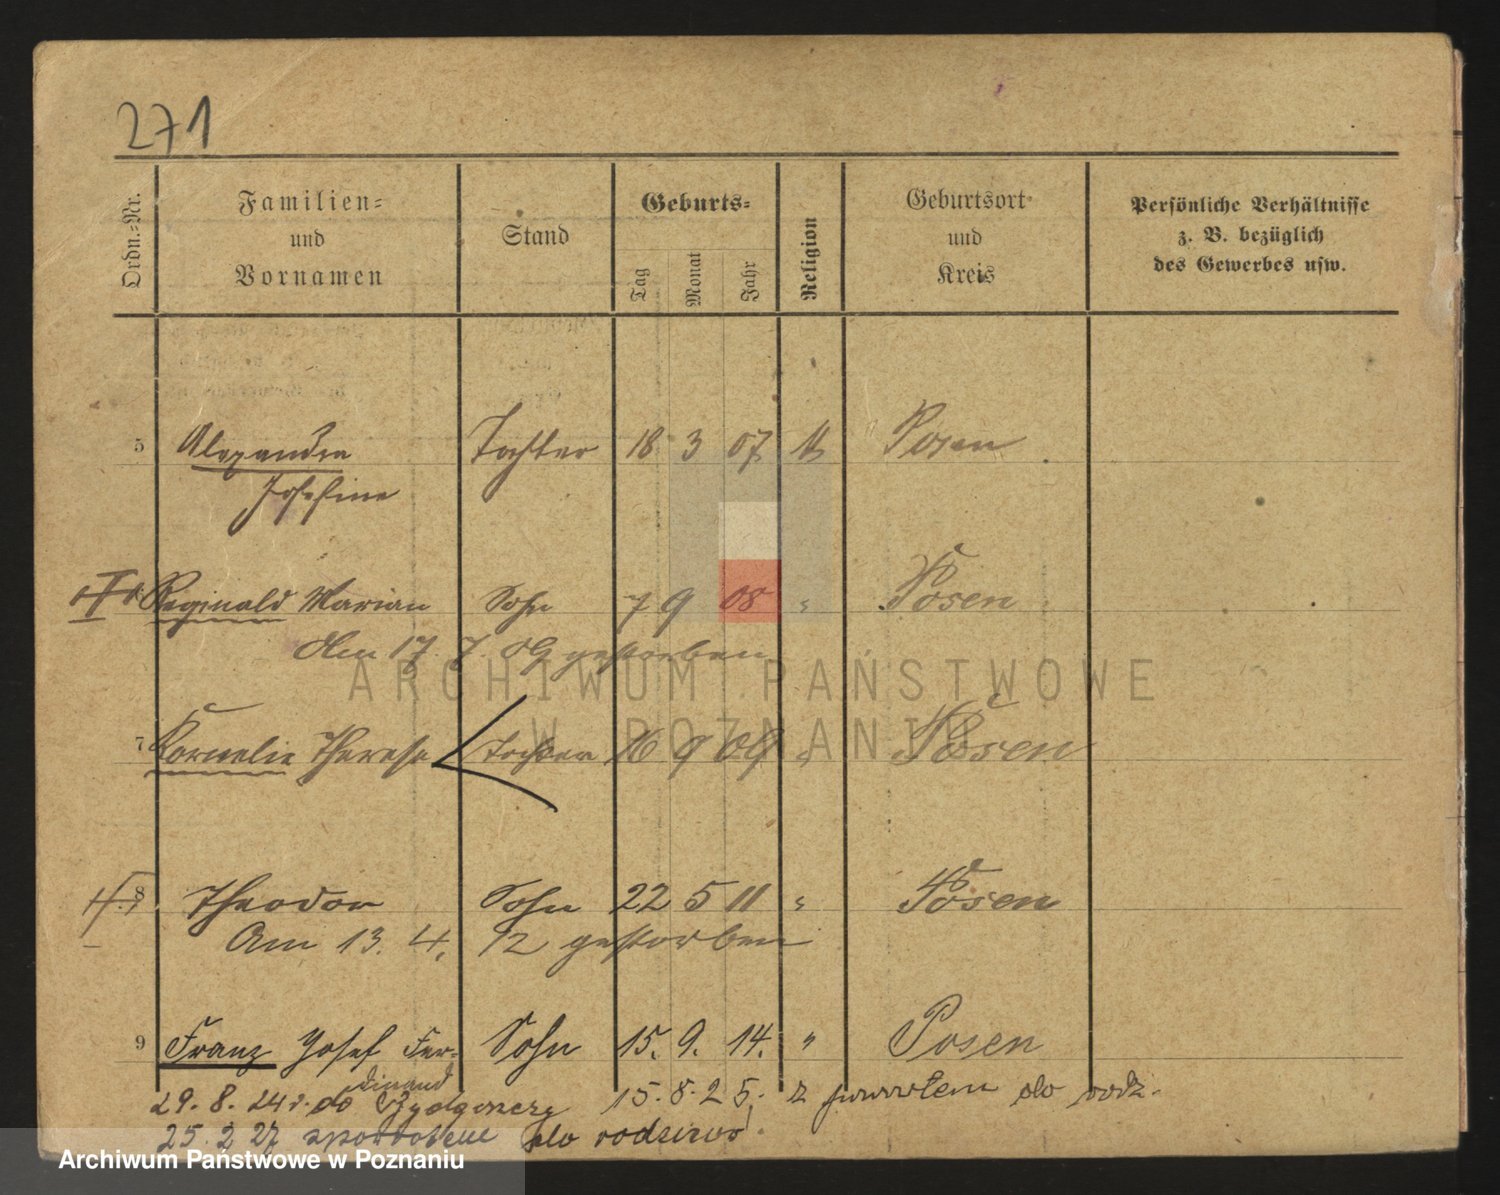 271
Ordn.-Nr.
Familien- und Vornamen
Stand
Geburts-
Tag Monat Jahr
Religion
Geburtsort und Kreis
Persönliche Verhältnisse z. B. bezüglich des Gewerbes usw.
5 Alexandra Tochter 18 3 07 Posen
Josefine
Reginald Marian Sohn 7 9 08 " Posen
Am 17. 7. 09 gestorben
ARCHIWUM PAŃSTWOWE
W POZNANIU
7 Kornelie Therese Tochter 16 9 09 " Posen
8 Theodor Sohn 22 5 11 " Posen
Am 13. 4. 12 gestorben
9 Franz Josef Fer- Sohn 15. 9. 14. " Posen
dinand
29. 8. 24 r. do Bydgoszczy 15. 8. 25. z powrotem do rodz.
25. 2 27 do rodziców.
Archiwum Państwowe w Poznaniu